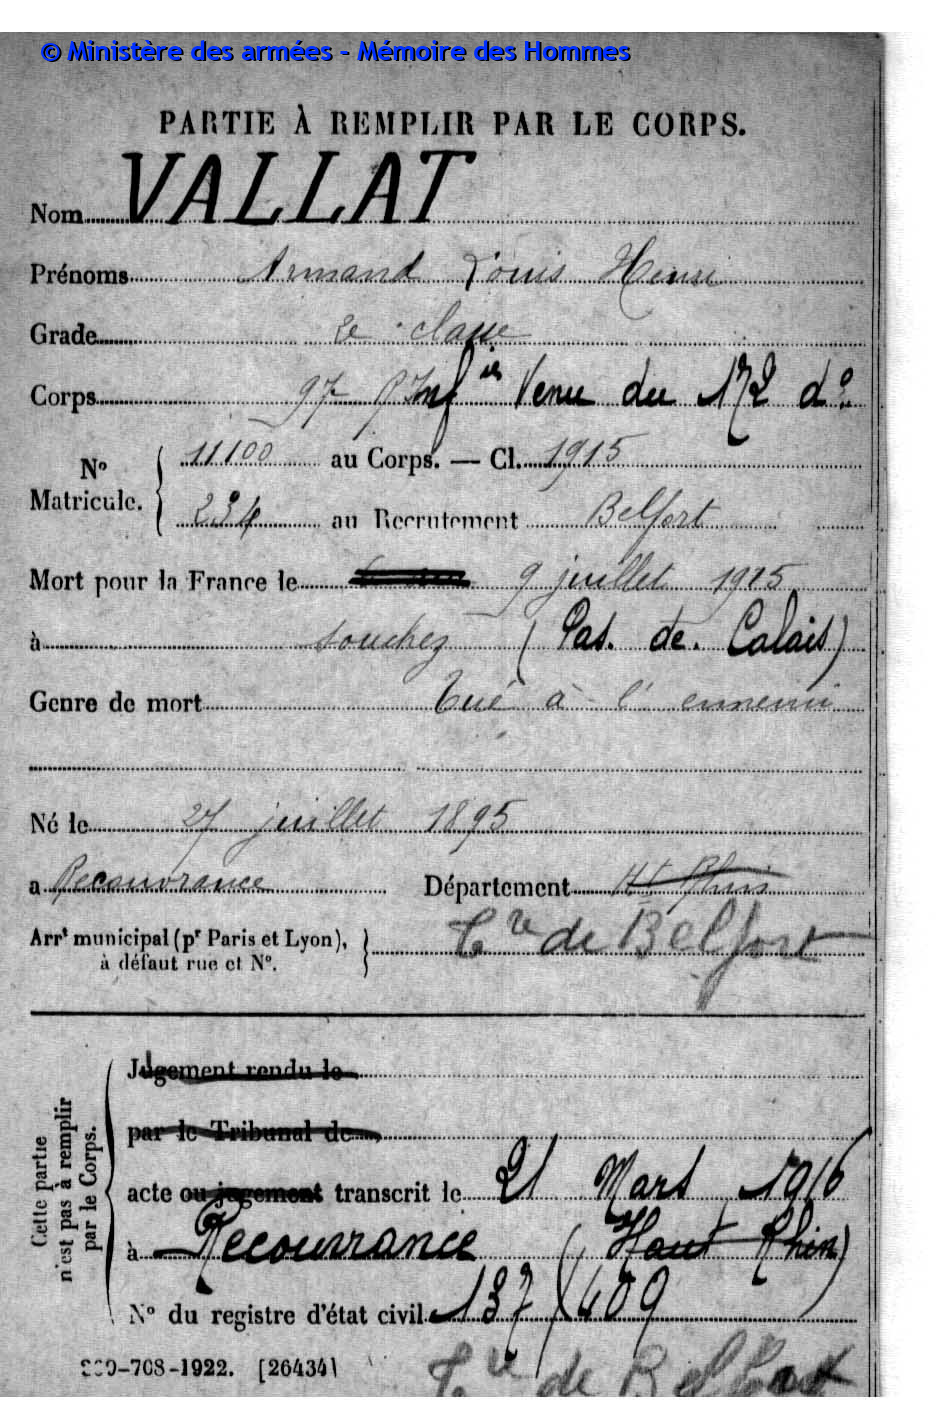 © Ministère des armées - Mémoire des Hommes
PARTIE À REMPLIR PAR LE CORPS.
Nom VALLAT
Prénoms Armand Louis Henri
Grade 2e classe
Corps 97 Infie Venu du 172 do
No Matricule. 11100 au Corps. — Cl. 1915
234 au Recrutement Belfort
Mort pour la France le 9 juillet 1915
à Souchez (Pas. de. Calais)
Genre de mort Tué à l'ennemi
Né le 27 juillet 1895
a Recouvrance Département Ht Rhin
Arrt municipal (pr Paris et Lyon),
à défaut rue et No.
Tre de Belfort
Cette partie
n'est pas à remplir
par le Corps.
Jugement rendu le
par le Tribunal de
acte ou jugement transcrit le 21 Mars 1916
à Recouvrance (Haut Rhin)
No du registre d'état civil 137/409
-708-1922. [26434]
Tre de Belfort